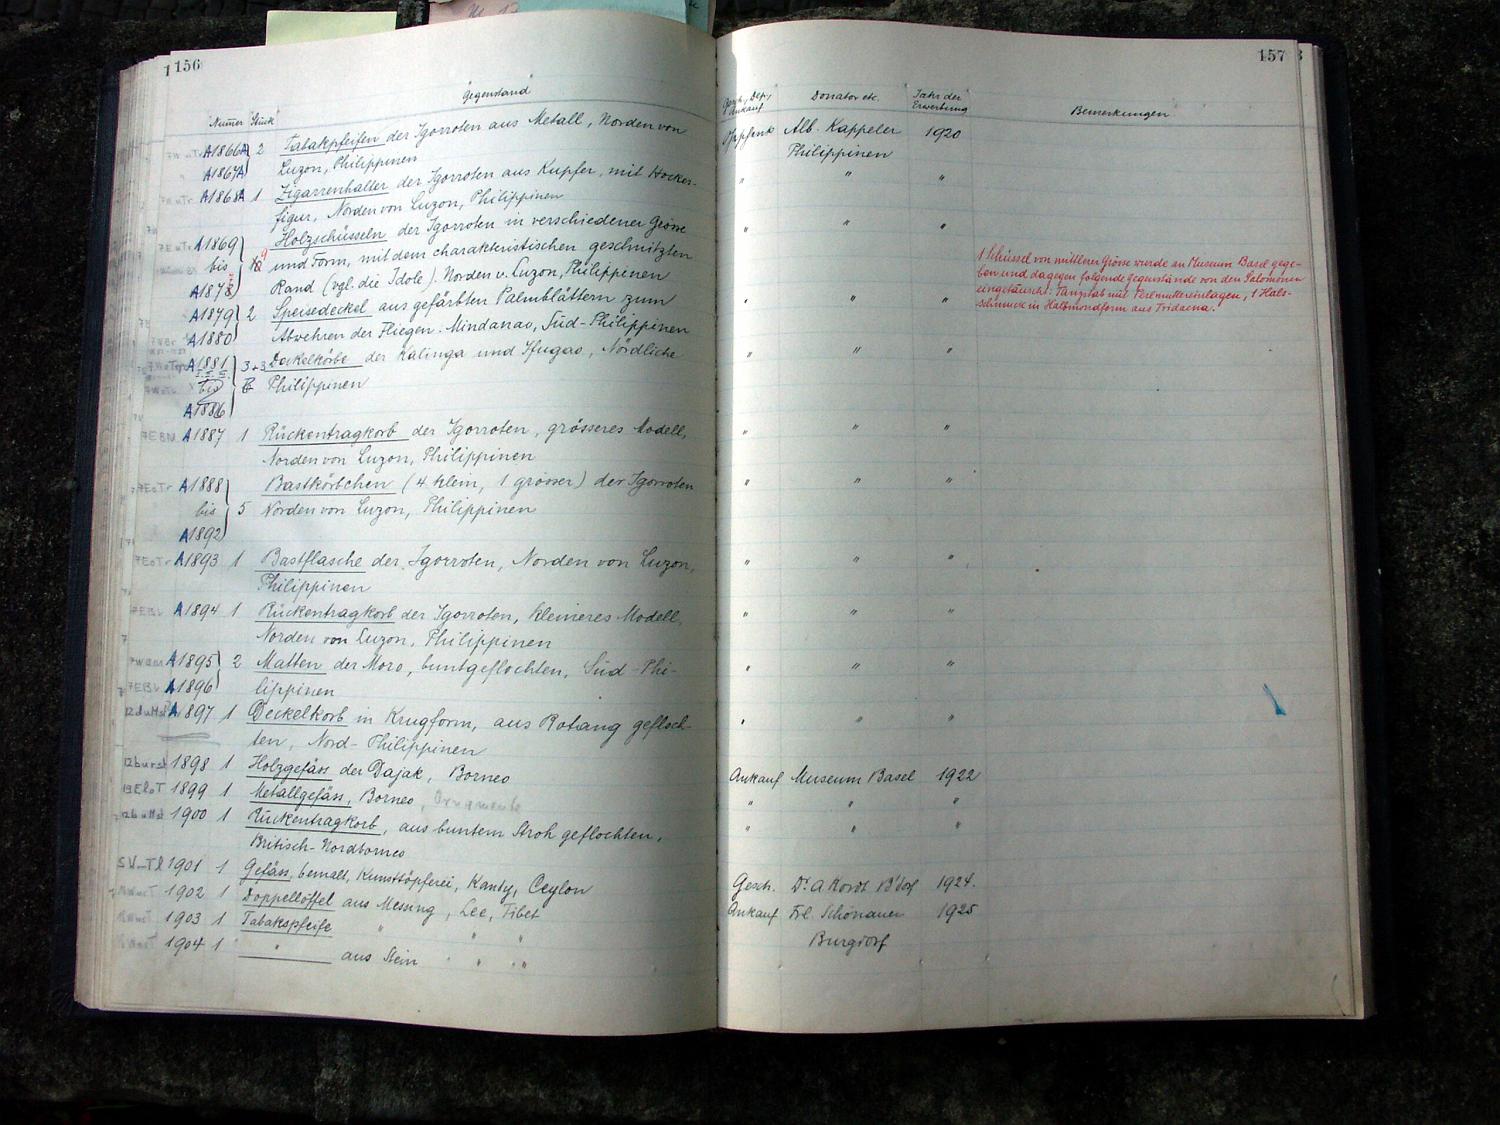 156
Gegenstand
Numer Stück
A1866A 2 Tabakpfeifen der Igorroten aus Metall, Norden von
A1867A Luzon, Philippinen
A1868A 1 Zigarrenhalter der Igorroten aus Kupfer, mit Hocker-
figur, Norden von Luzon, Philippinen
A1869 Holzschüsseln der Igorroten in verschiedener Grösse
bis 9 und Form, mit dem charakteristischen geschnitzten
A1878 Rand (vgl. die Idole). Norden v. Luzon, Philippinen
A1879 2 Speisedeckel aus gefärbten Palmblättern zum
A1880 Abwehren der Fliegen. Mindanao, Süd-Philippinen
A1881 3+3 Deckelkörbe der Kalinga und Ifugao, Nördliche
bis 6 Philippinen
A1886
A1887 1 Rückentragkorb der Igorroten, grösseres Modell,
Norden von Luzon, Philippinen
A1888 Bastkörbchen (4 klein, 1 grösser) der Igorroten
bis 5 Norden von Luzon, Philippinen
A1892
A1893 1 Bastflasche der Igorroten, Norden von Luzon,
Philippinen
A1894 1 Rückentragkorb der Igorroten, kleineres Modell,
Norden von Luzon, Philippinen
A1895 2 Matten der Moro, buntgeflochten, Süd-Phi-
A1896 lippinen
A1897 1 Deckelkorb in Krugform, aus Rotang gefloch-
ten, Nord-Philippinen
1898 1 Holzgefäss der Dajak, Borneo
1899 1 Metallgefäss, Borneo, Ornamente
1900 1 Rückentragkorb, aus buntem Stroh geflochten,
Britisch-Nordborneo
1901 1 Gefäss, bemalt, Kunsttöpferei, Kandy, Ceylon
1902 1 Doppellöffel aus Messing, Lee, Tibet
1903 1 Tabakspfeife " " "
1904 1 " aus Stein " " "
157
Gesch., Dep., Ankauf Donator etc. Jahr der Erwerbung Bemerkungen
Alb. Kappeler 1920
Philippinen
" " "
" " "
1 Schüssel von mittlerer Grösse wurde an Museum Basel gege-
ben und dagegen folgende Gegenstände von den Salomonen
eingetauscht: Tanzstab mit Perlmuttereinlagen, 1 Hals-
schmuck in Halbmondform aus Tridacna.
" " "
" " "
" " "
" " "
" " "
" " "
" " "
" " "
Ankauf Museum Basel 1922
" " "
" " "
Gesch. Dr. A Kordt B'dorf 1924.
Ankauf Frl. Schönauer 1925
Burgdorf